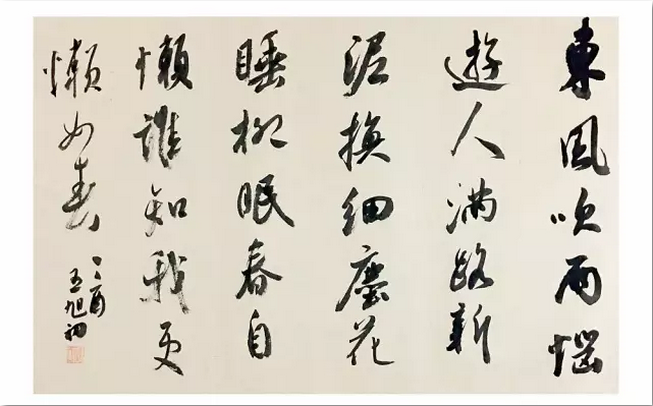 東風吹雨惱
遊人滿路新
泥換細塵花
睡柳眠春自
懶誰知我更
懶如春
酉
王旭初